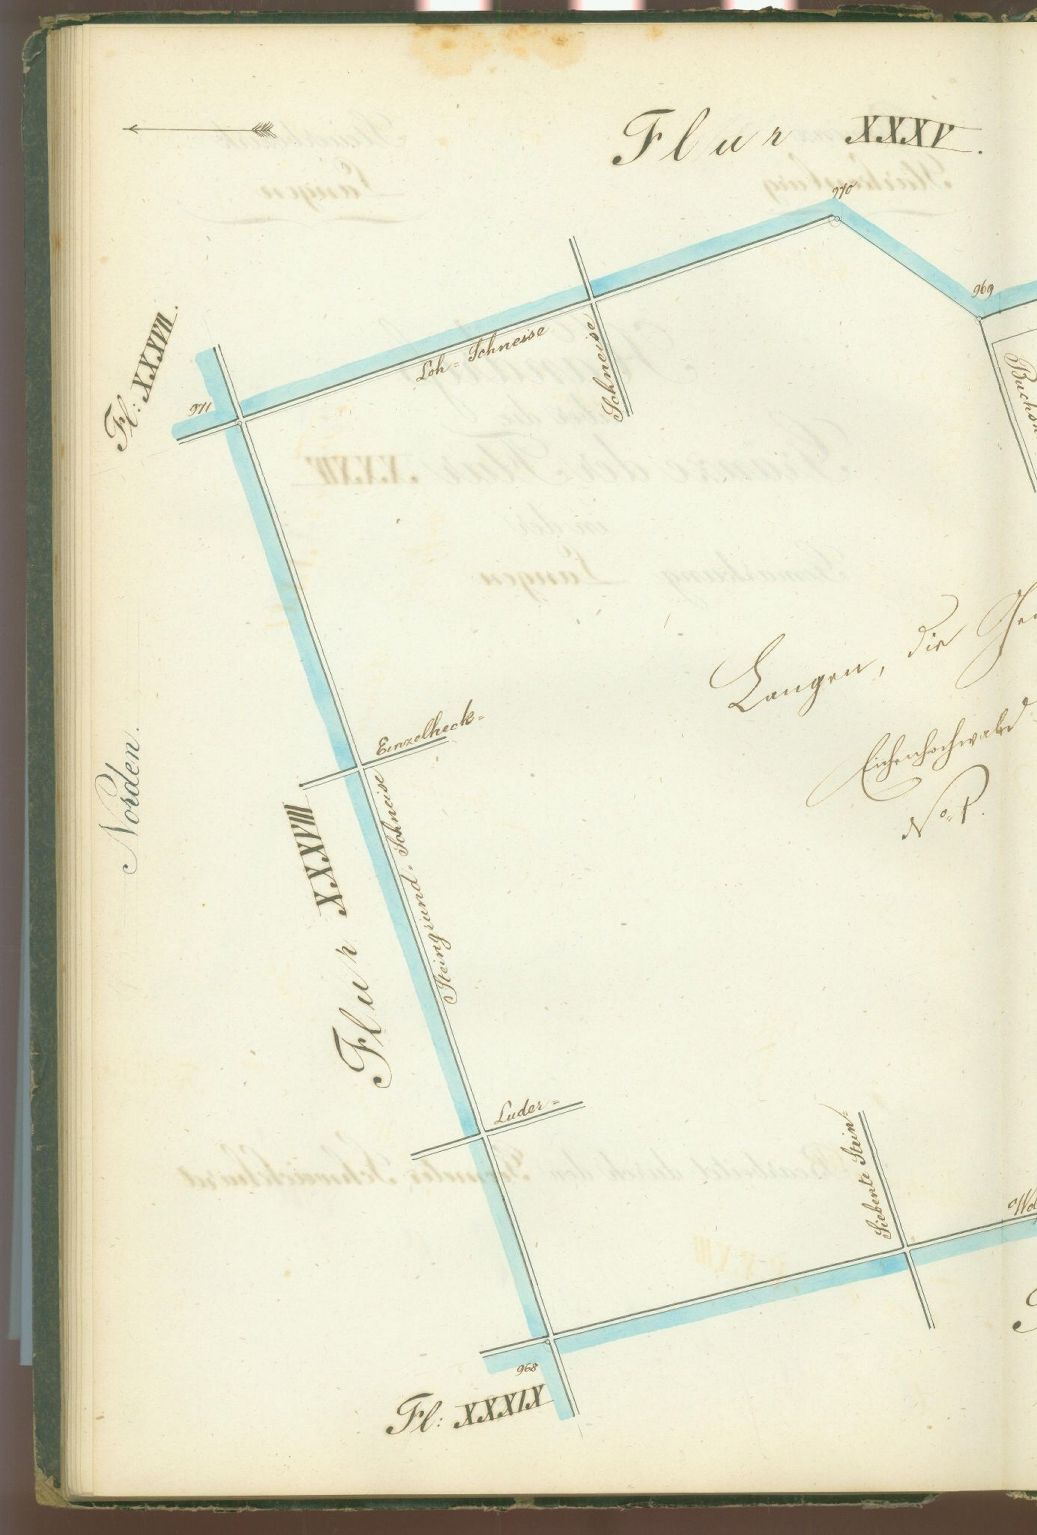 Flur XXXV.
970
969
Fl: XXXVII.
971
Loh= Schneise
Schneise
Langen, die
Eichenhochwald
Nº 1.
Norden.
Einzelheck=
Steingrund=Schneise
Flur XXXVIII
Luder=
Siebente Stein=
968
Fl: XXXIX